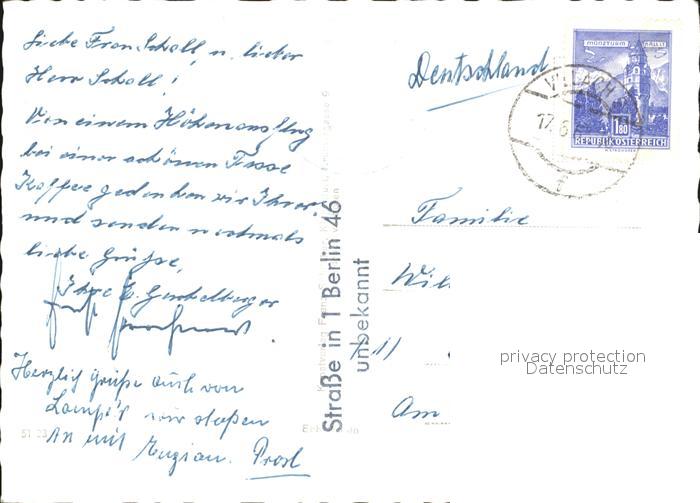 Liebe Frau Scholl, u. lieber
Herr Scholl!
Von einem Höhenausflug
bei einer schönen Tasse
Kaffee gedenken wir Ihrer
und senden nochmals
liebe Grüße,
Ihre E.
Herzlich Grüße auch von
wir stoßen
An mit Enzian. Prost
Deutschland
MÜNZTURM HALL I. T.
VILLACH
17.6.
1.80
REPUBLIK ÖSTERREICH
f
Familie
Wil
Am
Straße in 1 Berlin 46
unbekannt
privacy protection
Datenschutz